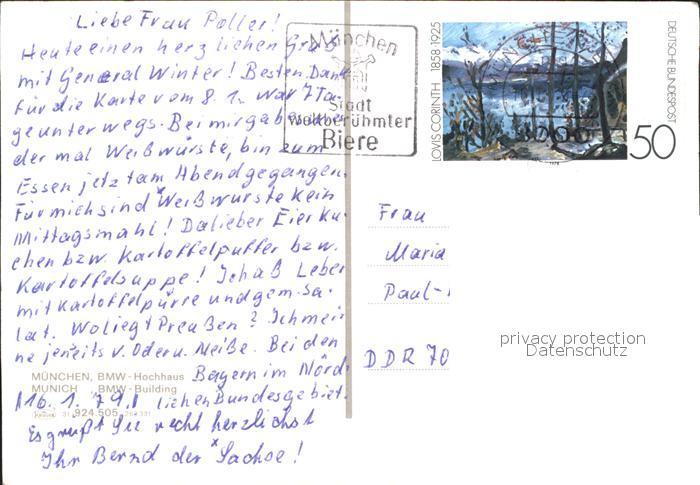 Liebe Frau Poller!
Heute einen herzlichen Gruß
mit General Winter! Besten Dank
für die Karte vom 8. 1. war 7 Ta-
ge unterwegs. Bei mir gab es
der mal Weißwürste, bin zum
Essen jetzt am Abend gegangen.
Für mich sind Weißwürste kein
Mittagsmahl! Da lieber Eierku-
chen bzw. Kartoffelpuffer bzw.
Kartoffelsuppe! Ich aß Leber
mit Kartoffelpürre und gem. Sa-
lat. Wo liegt Preußen? Ich mei-
ne jenseits v. Oder u. Neiße. Bei den
Bayern im Nörd-
lichen Bundesgebiet.
16. 1. 79
Es grüßt Sie recht herzlichst
Ihr Bernd der Sachse!
MÜNCHEN, BMW-Hochhaus
MUNICH BMW-Building
924.505
München
Stadt
weltberühmter
Biere
LOVIS CORINTH 1858-1925
DEUTSCHE BUNDESPOST
50
Frau
Maria
Paul-
DDR 70
privacy protection
Datenschutz